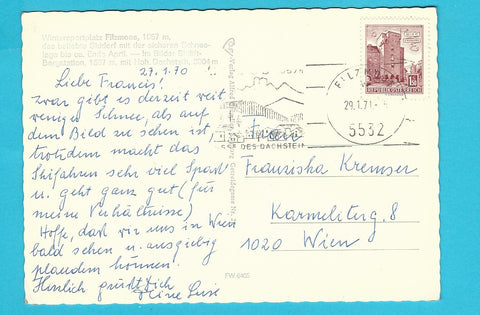 Wintersportplatz Filzmoos, 1057 m,
das beliebte Skidorf mit der sicheren Schnee-
lage bis ca. Ende April. — Im Bilde:
Bergstation, 1837 m, mit Hoh. Dachstein, 3004 m
27.1.70
Liebe Francis!
zwar gibt es derzeit weit
weniger Schnee, als auf
dem Bild zu sehen ist,
trotzdem macht das
Skifahren sehr viel Spaß
u. geht ganz gut (für
meine Verhältnisse)
Hoffe, daß wir uns in Wien
bald sehen u. ausgiebig
plaudern können.
Herzlich grüßt Dich
Deine Luise
REPUBLIK ÖSTERREICH
DES DACHSTEIN
29.1.71
5532
Frau
Franziska Kremser
Karmeliterg. 8
1020 Wien